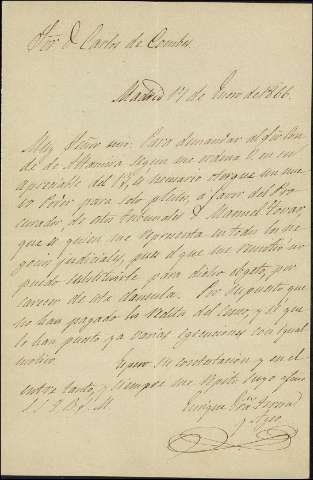 Sor. D. Carlos de Combes.
Madrid 17 de Enero de 1866.
Muy Señor mio: Para demandar al Sr. Conde
de Altamira segun me ordena V. en su
apreciable del 13, es necesario otorgue un nuevo
Poder para solo pleitos, á favor del Procurador
de estos Tribunales D. Manuel
que es quien me representa en todos los negocios
judiciales, pues el que me remitió no
puedo substituirle para dicho objeto, por
carecer de esta clausula. Por supuesto que
no han pagado los reditos del Censo, y el que
le han puesto ya varias Egecuciones con igual
motivo.
Espero su contestacion y en el
entre tanto, y siempre me repito suyo afmo
S. S. Q. B. S. M.
Enrique